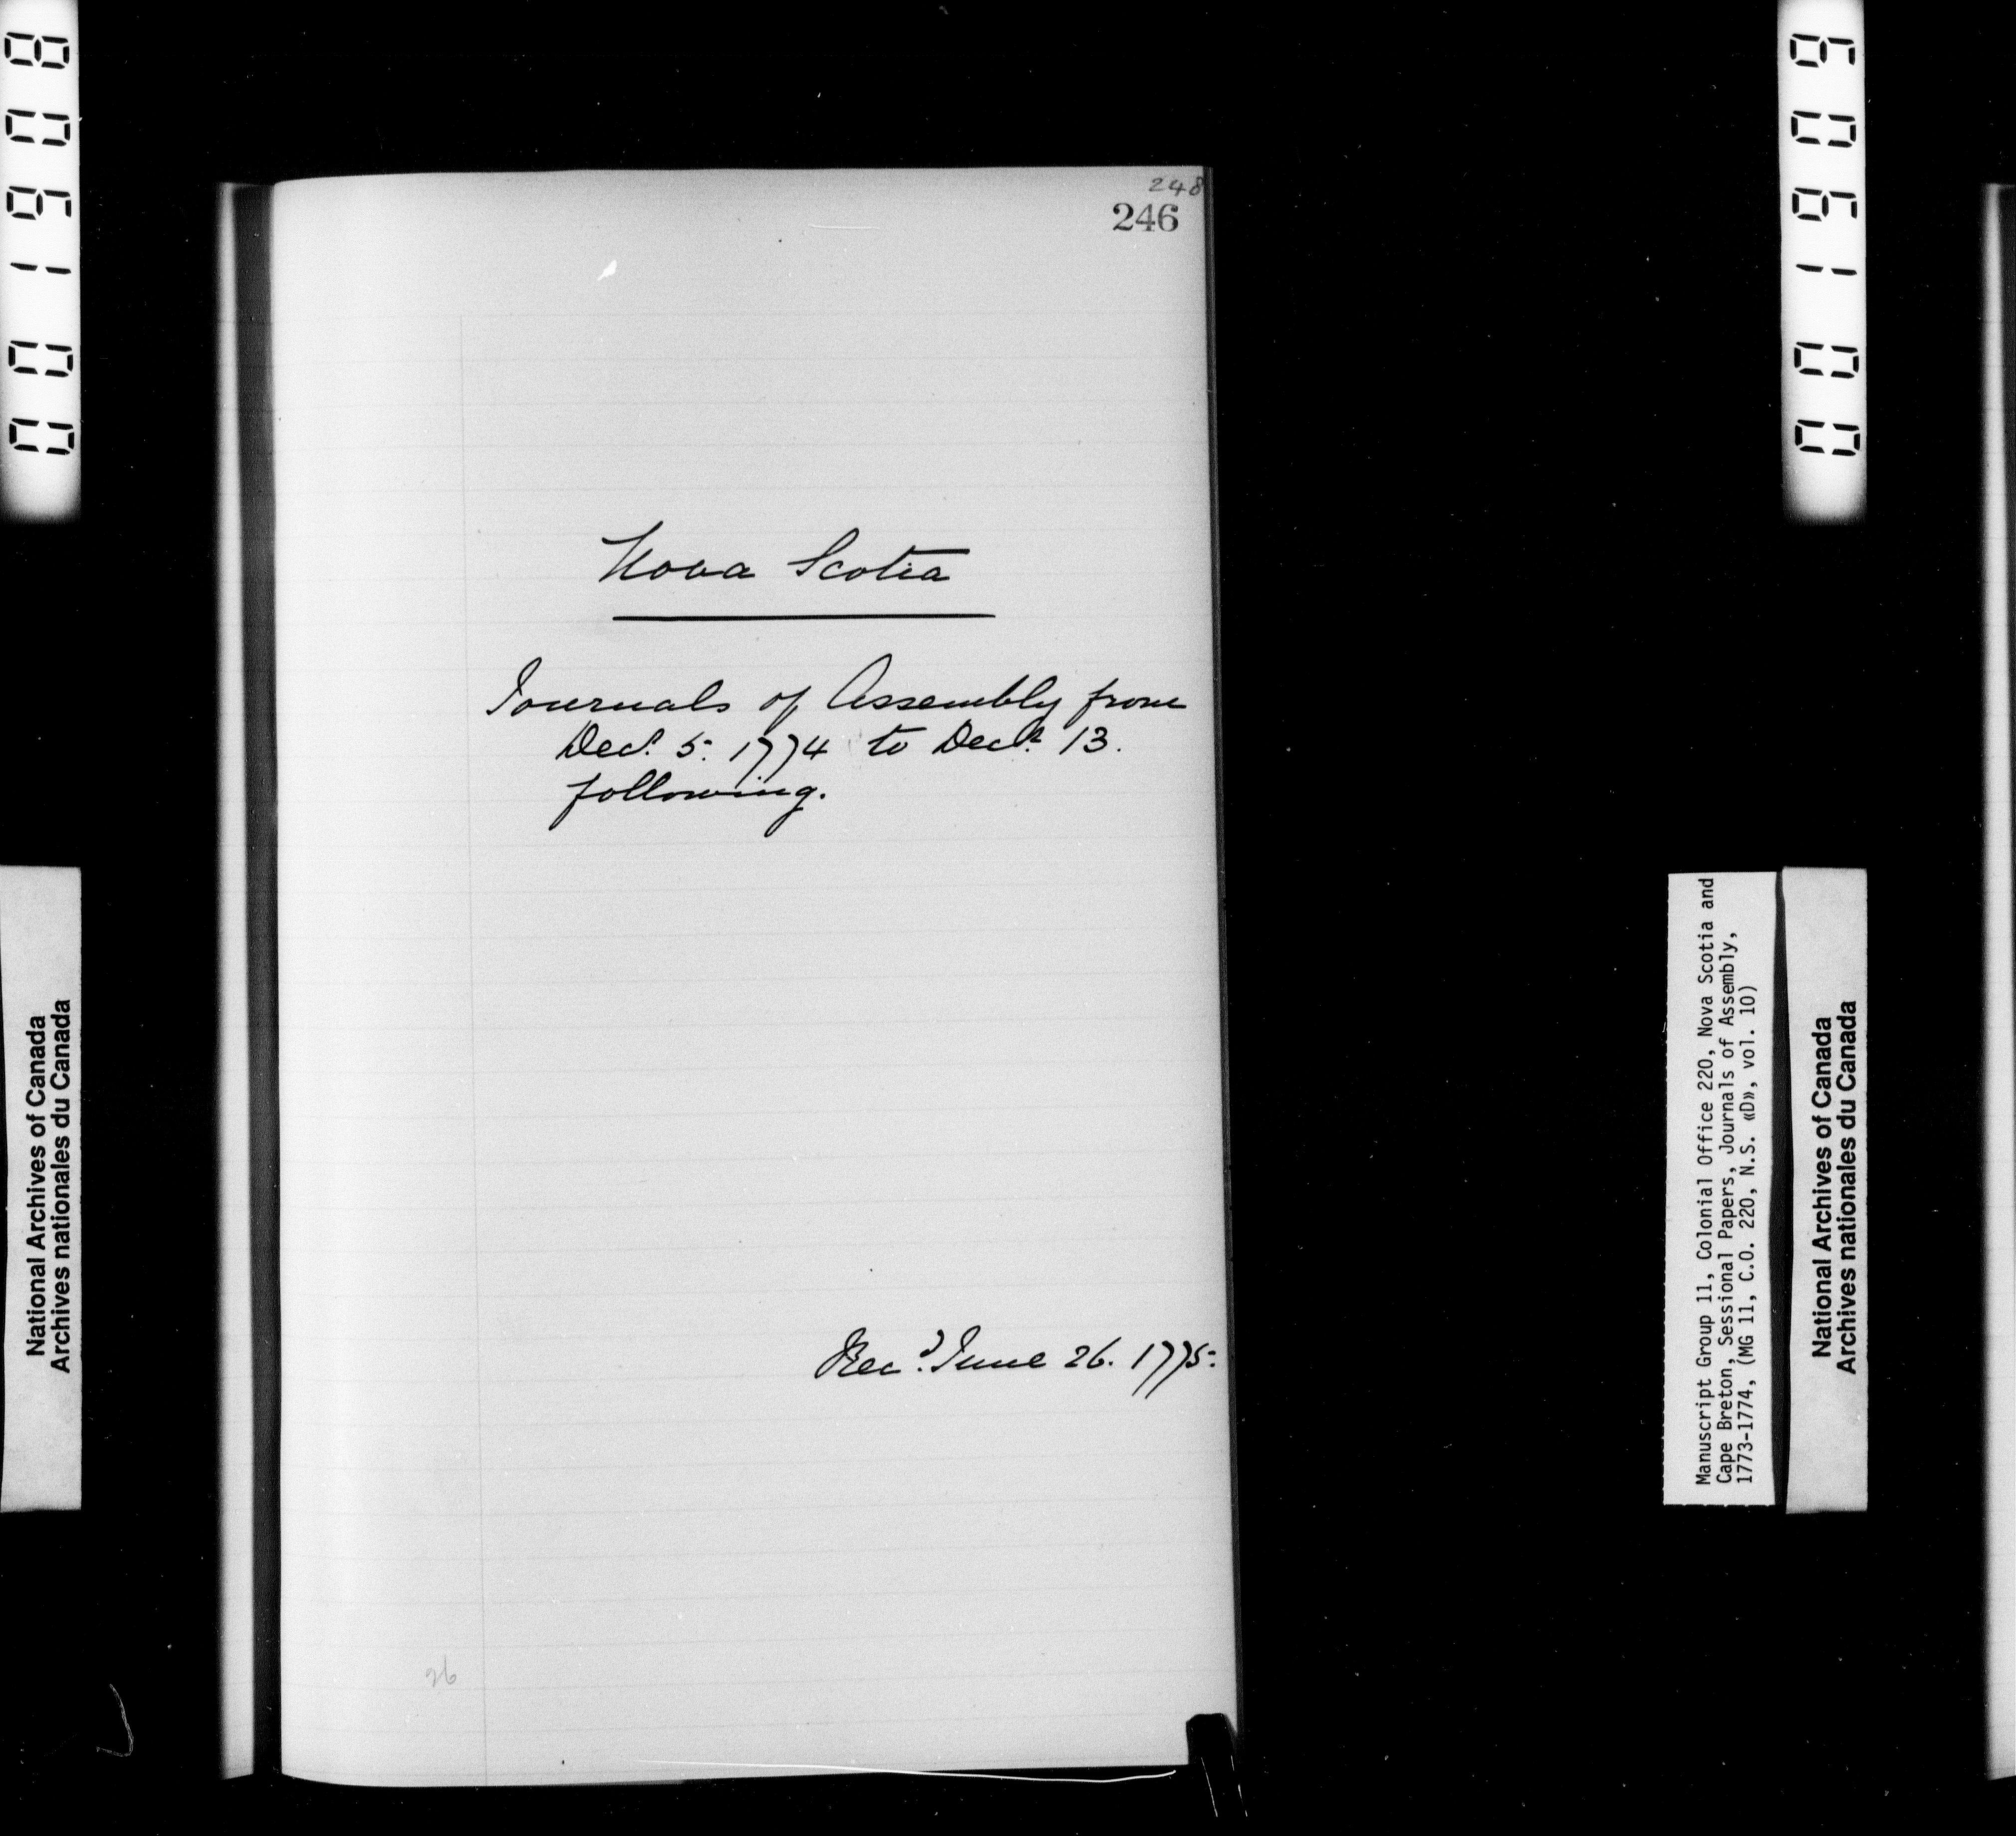 001908
National Archives of Canada
Archives nationales du Canada
248
246
Nova Scotia
Journals of Assembly from
Decr. 5. 1774 to Decr. 13.
following.
Recd. June 26. 1775.
26
001909
Manuscript Group 11, Colonial Office 220, Nova Scotia and
Cape Breton, Sessional Papers, Journals of Assembly,
1773-1774, (MG 11, C.O. 220, N.S. «D», vol. 10)
National Archives of Canada
Archives nationales du Canada